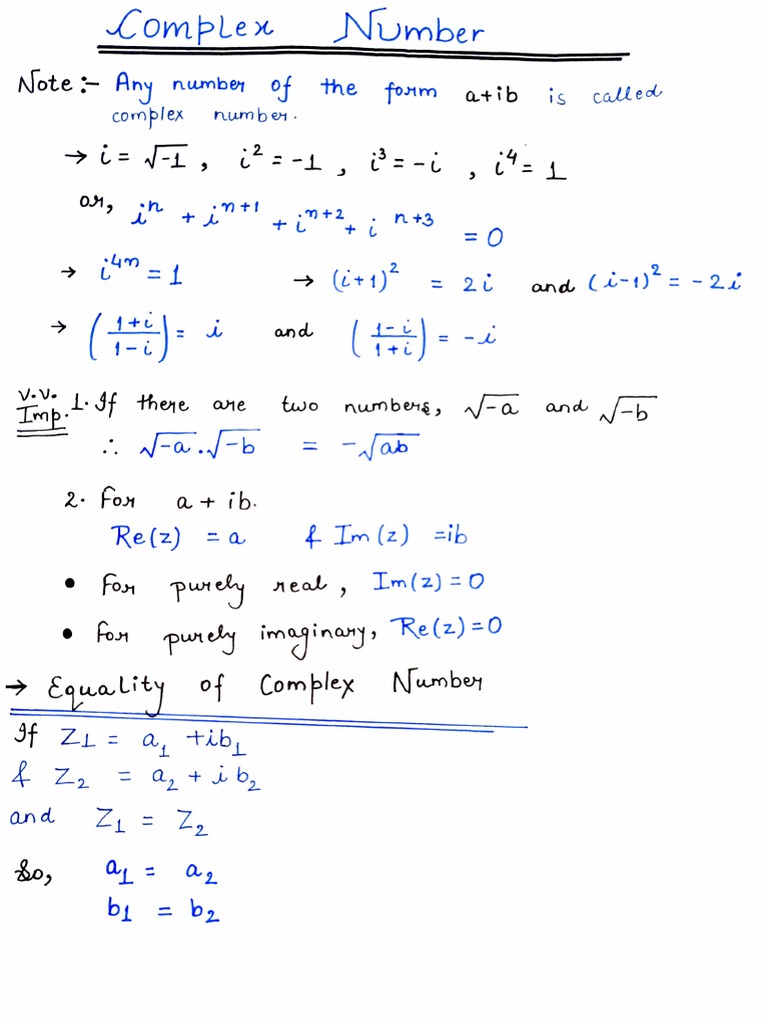 Complex Number
Note :- Any number of the form a+ib is called
complex number.
→ i = √-1 , i² = -1 , i³ = -i , i⁴ = 1
or, iⁿ + iⁿ⁺¹ + iⁿ⁺² + i ⁿ⁺³ = 0
→ i⁴ⁿ = 1 → (i+1)² = 2i and (i-1)² = -2i
→ ((1+i)/(1-i)) = i and ((1-i)/(1+i)) = -i
V.V. Imp. 1. If there are two numbers, √-a and √-b
∴ √-a . √-b = -√ab
2. For a + ib.
Re(z) = a & Im(z) = ib
• For purely real, Im(z) = 0
• For purely imaginary, Re(z) = 0
→ Equality of Complex Number
If Z₁ = a₁ + ib₁
& Z₂ = a₂ + i b₂
and Z₁ = Z₂
So, a₁ = a₂
b₁ = b₂